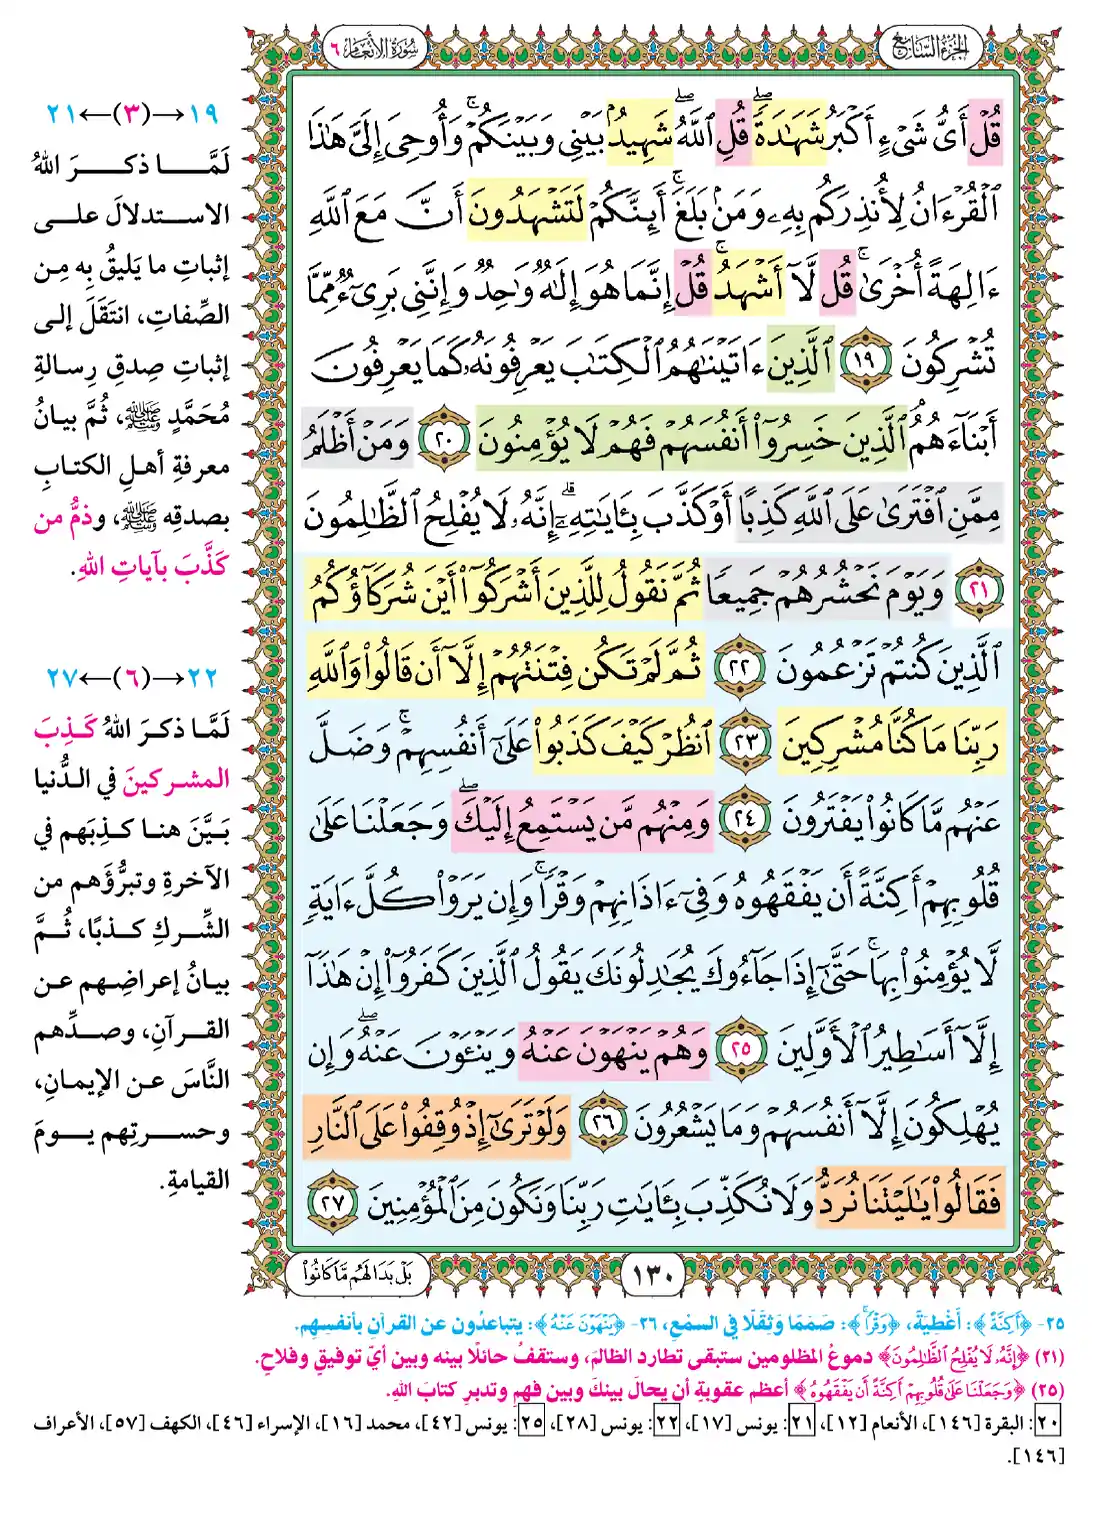 الجزء السابع
سورة الأنعام ٦
قُلْ أَىُّ شَىْءٍ أَكْبَرُ شَهَٰدَةً ۖ قُلِ ٱللَّهُ ۖ شَهِيدٌۢ بَيْنِى وَبَيْنَكُمْ ۚ وَأُوحِىَ إِلَىَّ هَٰذَا
ٱلْقُرْءَانُ لِأُنذِرَكُم بِهِۦ وَمَنۢ بَلَغَ ۚ أَئِنَّكُمْ لَتَشْهَدُونَ أَنَّ مَعَ ٱللَّهِ
ءَالِهَةً أُخْرَىٰ ۚ قُل لَّآ أَشْهَدُ ۚ قُلْ إِنَّمَا هُوَ إِلَٰهٌ وَٰحِدٌ وَإِنَّنِى بَرِىٓءٌ مِّمَّا
تُشْرِكُونَ ١٩ ٱلَّذِينَ ءَاتَيْنَٰهُمُ ٱلْكِتَٰبَ يَعْرِفُونَهُۥ كَمَا يَعْرِفُونَ
أَبْنَآءَهُمُ ٱلَّذِينَ خَسِرُوٓا۟ أَنفُسَهُمْ فَهُمْ لَا يُؤْمِنُونَ ٢٠ وَمَنْ أَظْلَمُ
مِمَّنِ ٱفْتَرَىٰ عَلَى ٱللَّهِ كَذِبًا أَوْ كَذَّبَ بِـَٔايَٰتِهِۦٓ ۗ إِنَّهُۥ لَا يُفْلِحُ ٱلظَّٰلِمُونَ
٢١ وَيَوْمَ نَحْشُرُهُمْ جَمِيعًا ثُمَّ نَقُولُ لِلَّذِينَ أَشْرَكُوٓا۟ أَيْنَ شُرَكَآؤُكُمُ
ٱلَّذِينَ كُنتُمْ تَزْعُمُونَ ٢٢ ثُمَّ لَمْ تَكُن فِتْنَتُهُمْ إِلَّآ أَن قَالُوا۟ وَٱللَّهِ
رَبِّنَا مَا كُنَّا مُشْرِكِينَ ٢٣ ٱنظُرْ كَيْفَ كَذَبُوا۟ عَلَىٰٓ أَنفُسِهِمْ ۚ وَضَلَّ
عَنْهُم مَّا كَانُوا۟ يَفْتَرُونَ ٢٤ وَمِنْهُم مَّن يَسْتَمِعُ إِلَيْكَ ۖ وَجَعَلْنَا عَلَىٰ
قُلُوبِهِمْ أَكِنَّةً أَن يَفْقَهُوهُ وَفِىٓ ءَاذَانِهِمْ وَقْرًا ۚ وَإِن يَرَوْا۟ كُلَّ ءَايَةٍ
لَّا يُؤْمِنُوا۟ بِهَا ۚ حَتَّىٰٓ إِذَا جَآءُوكَ يُجَٰدِلُونَكَ يَقُولُ ٱلَّذِينَ كَفَرُوٓا۟ إِنْ هَٰذَآ
إِلَّآ أَسَٰطِيرُ ٱلْأَوَّلِينَ ٢٥ وَهُمْ يَنْهَوْنَ عَنْهُ وَيَنْـَٔوْنَ عَنْهُ ۖ وَإِن
يُهْلِكُونَ إِلَّآ أَنفُسَهُمْ وَمَا يَشْعُرُونَ ٢٦ وَلَوْ تَرَىٰٓ إِذْ وُقِفُوا۟ عَلَى ٱلنَّارِ
فَقَالُوا۟ يَٰلَيْتَنَا نُرَدُّ وَلَا نُكَذِّبَ بِـَٔايَٰتِ رَبِّنَا وَنَكُونَ مِنَ ٱلْمُؤْمِنِينَ ٢٧
١٣٠
بَلْ بَدَا لَهُم مَّا كَانُوا۟
١٩→(٣)←٢١
لَمَّا ذكرَ اللهُ
الاستدلالَ على
إثباتِ ما يَليقُ به مِن
الصِّفاتِ، انتَقَلَ إلى
إثباتِ صِدقِ رِسالةِ
مُحَمَّدٍ ﷺ، ثُمَّ بيانُ
معرفةِ أهلِ الكتابِ
بصدقِه ﷺ، وذمُّ من
كَذَّبَ بآياتِ اللهِ.
٢٢→(٦)←٢٧
لَمَّا ذكرَ اللهُ كَذِبَ
المشركينَ في الدُّنيا
بَيَّنَ هنا كذِبَهم في
الآخرةِ وتبرُّؤَهم من
الشِّركِ كذبًا، ثُمَّ
بيانُ إعراضِهم عن
القرآنِ، وصدِّهم
النَّاسَ عن الإيمانِ،
وحسرتِهم يومَ
القيامةِ.
٢٥- ﴿أَكِنَّةً﴾: أَغْطِيَةً، ﴿وَقْرًا﴾: صَمَمًا وَثِقَلًا فِي السَّمْعِ، ٢٦- ﴿يَنْهَوْنَ عَنْهُ﴾: يتباعدُون عن القرآنِ بأنفسِهِم.
(٢١) ﴿إِنَّهُۥ لَا يُفْلِحُ ٱلظَّٰلِمُونَ﴾ دموعُ المظلومين ستبقى تطارد الظالمَ، وستقفُ حائلًا بينه وبين أيّ توفيقٍ وفلاحٍ.
(٢٥) ﴿وَجَعَلْنَا عَلَىٰ قُلُوبِهِمْ أَكِنَّةً أَن يَفْقَهُوهُ﴾ أعظم عقوبةٍ أن يحالَ بينكَ وبين فهمِ وتدبرِ كتابَ اللهِ.
٢٠: البقرة [١٤٦]، الأنعام [١٢]، ٢١: يونس [١٧]، ٢٢: يونس [٢٨]، ٢٥: يونس [٤٢]، محمد [١٦]، الإسراء [٤٦]، الكهف [٥٧]، الأعراف
[١٤٦].